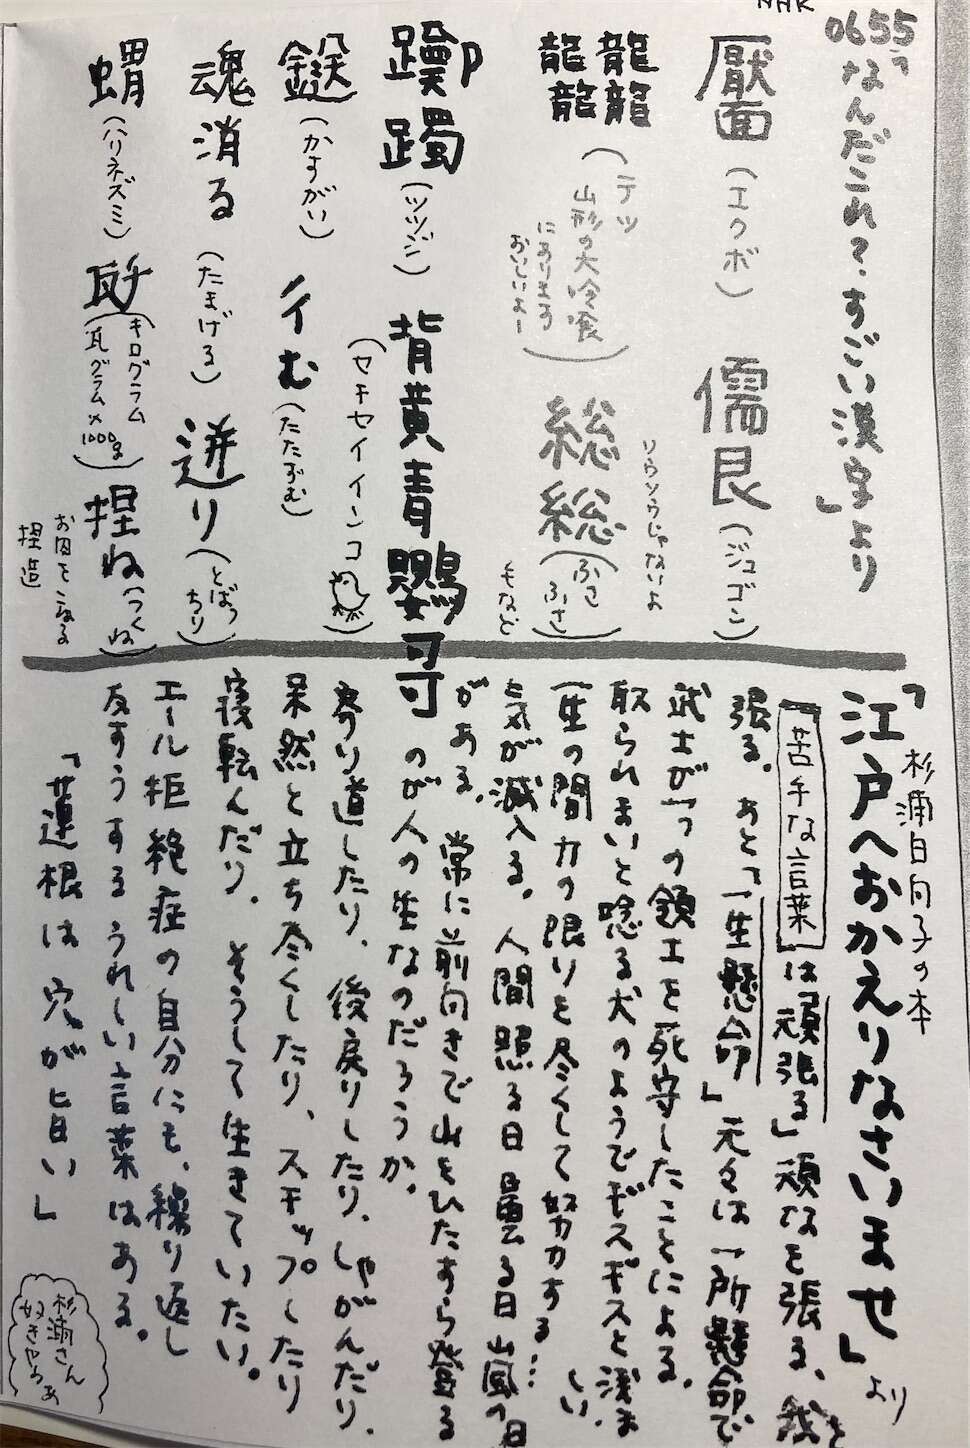 NHK
0655「なんだこれ？すごい漢字」より
靨(エクボ) 儒艮(ジュゴン)
龍龍龍龍(テツ 山形の大喰
にありますう
おいしいよー)
総総(ふさふさ)
ソウソウじゃないよ
毛など
躑躅(ツツジ) 背黄青鸚哥
(セキセイインコ)
鎹(かすがい) 彳む(たたずむ)
魂消る(たまげる) 迸り(とばっちり)
蝟(ハリネズミ) 瓩(キログラム
瓦グラム×1000g) 捏ね(つくね)
お肉をこねる
捏造
杉浦日向子の本
「江戸へおかえりなさいませ」より
「苦手な言葉」は「頑張る」頑なを張る、我を
張る。あと「一生懸命」元々は一所懸命で
武士が一つの領土を死守したことによる。
取られまいと唸る犬のようでギスギスと浅ましい
一生の間力の限りを尽くして努力する…
と気が滅入る。人間照る日曇る日嵐の日
がある。常に前向きで山をひたすら登る
のが人の生なのだろうか。
寄り道したり、後戻りしたり、しゃがんだり、
呆然と立ち尽くしたり、スキップしたり
寝転んだり。そうして生きていたい。
エール拒絶症の自分にも、繰り返し
反すうするうれしい言葉はある。
「蓮根は穴が旨い」
杉浦さん
好きやるぁ